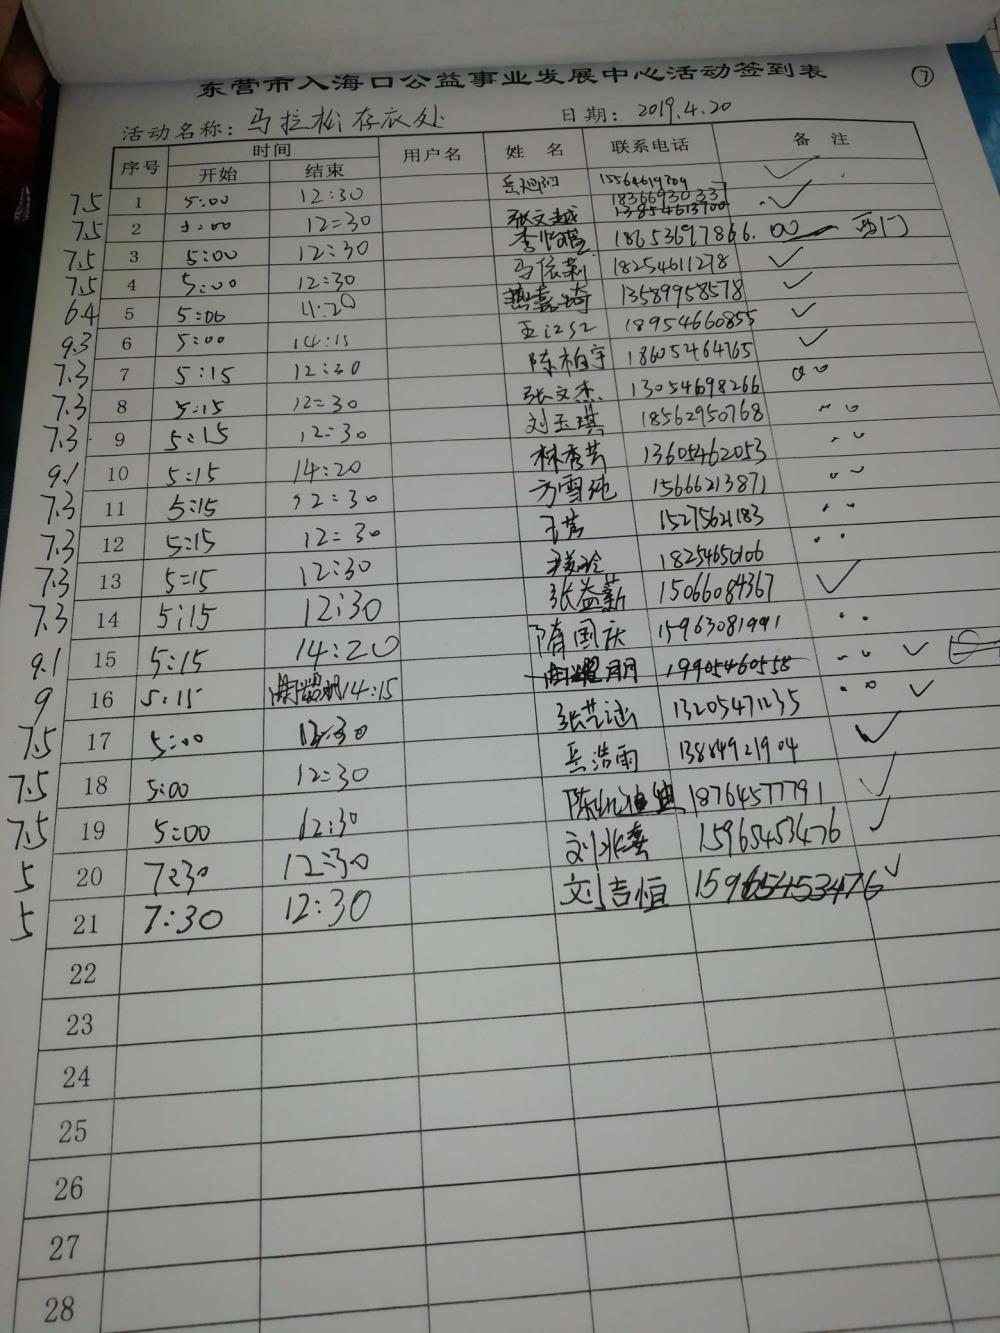 东营市入海口公益事业发展中心活动签到表 ⑦
活动名称：马拉松存衣处 日期：2019.4.20
序号 时间 用户名 姓名 联系电话 备注
开始 结束
7.5 1 5:00 12:30 岳旭阳 15564619309 ✓
18366930337
7.5 2 5:00 12=30 张文越 13854613700 ✓
7.5 3 5:00 12:30 李怡 18653697866. 00 西门
7.5 4 5:00 12=30 马依莉 18254611278 ✓
6.4 5 5:00 11:20 嘉琦 13589958578 ✓
9.3 6 5:00 14:15 王 18954660855 ✓
7.3 7 5:15 12:30 陈柏宇 18605464765 ✓
7.3 8 5:15 12=30 张文杰 13054698266
7.3 9 5:15 12=30 刘玉琪 18562950768
9.1 10 5:15 14:20 林秀芸 13605462053
7.3 11 5:15 12=30 方雪纯 15666213871
7.3 12 5:15 12=30 15275621183
7.3 13 5=15 12:30 18254650106
7.3 14 5:15 12:30 张益新 15066084367 ✓
9.1 15 5:15 14:20 隋国庆 15963081991
9 16 5:15 14:15 19905460558 ✓
7.5 17 5:00 12:30 张艺涵 13205471235 ✓
7.5 18 5:00 12=30 岳浩雨 13884921904 ✓
7.5 19 5:00 12:30 陈 18764577791 ✓
5 20 7:30 12:30 刘 15965453476 ✓
5 21 7:30 12:30 刘吉恒 15965453476 ✓
22
23
24
25
26
27
28